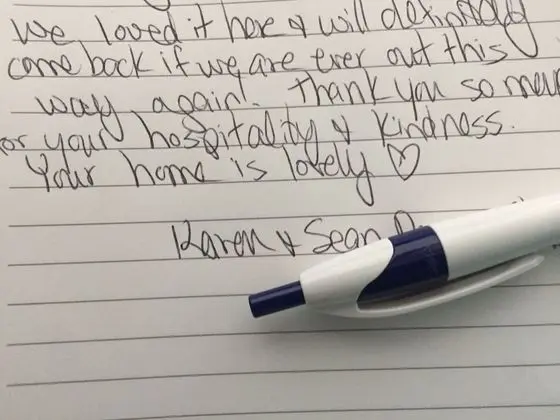 We loved it here & will definitely
come back if we are ever out this
way again! Thank you so
for your hospitality & kindness.
Your home is lovely ♡
Karen & Sean